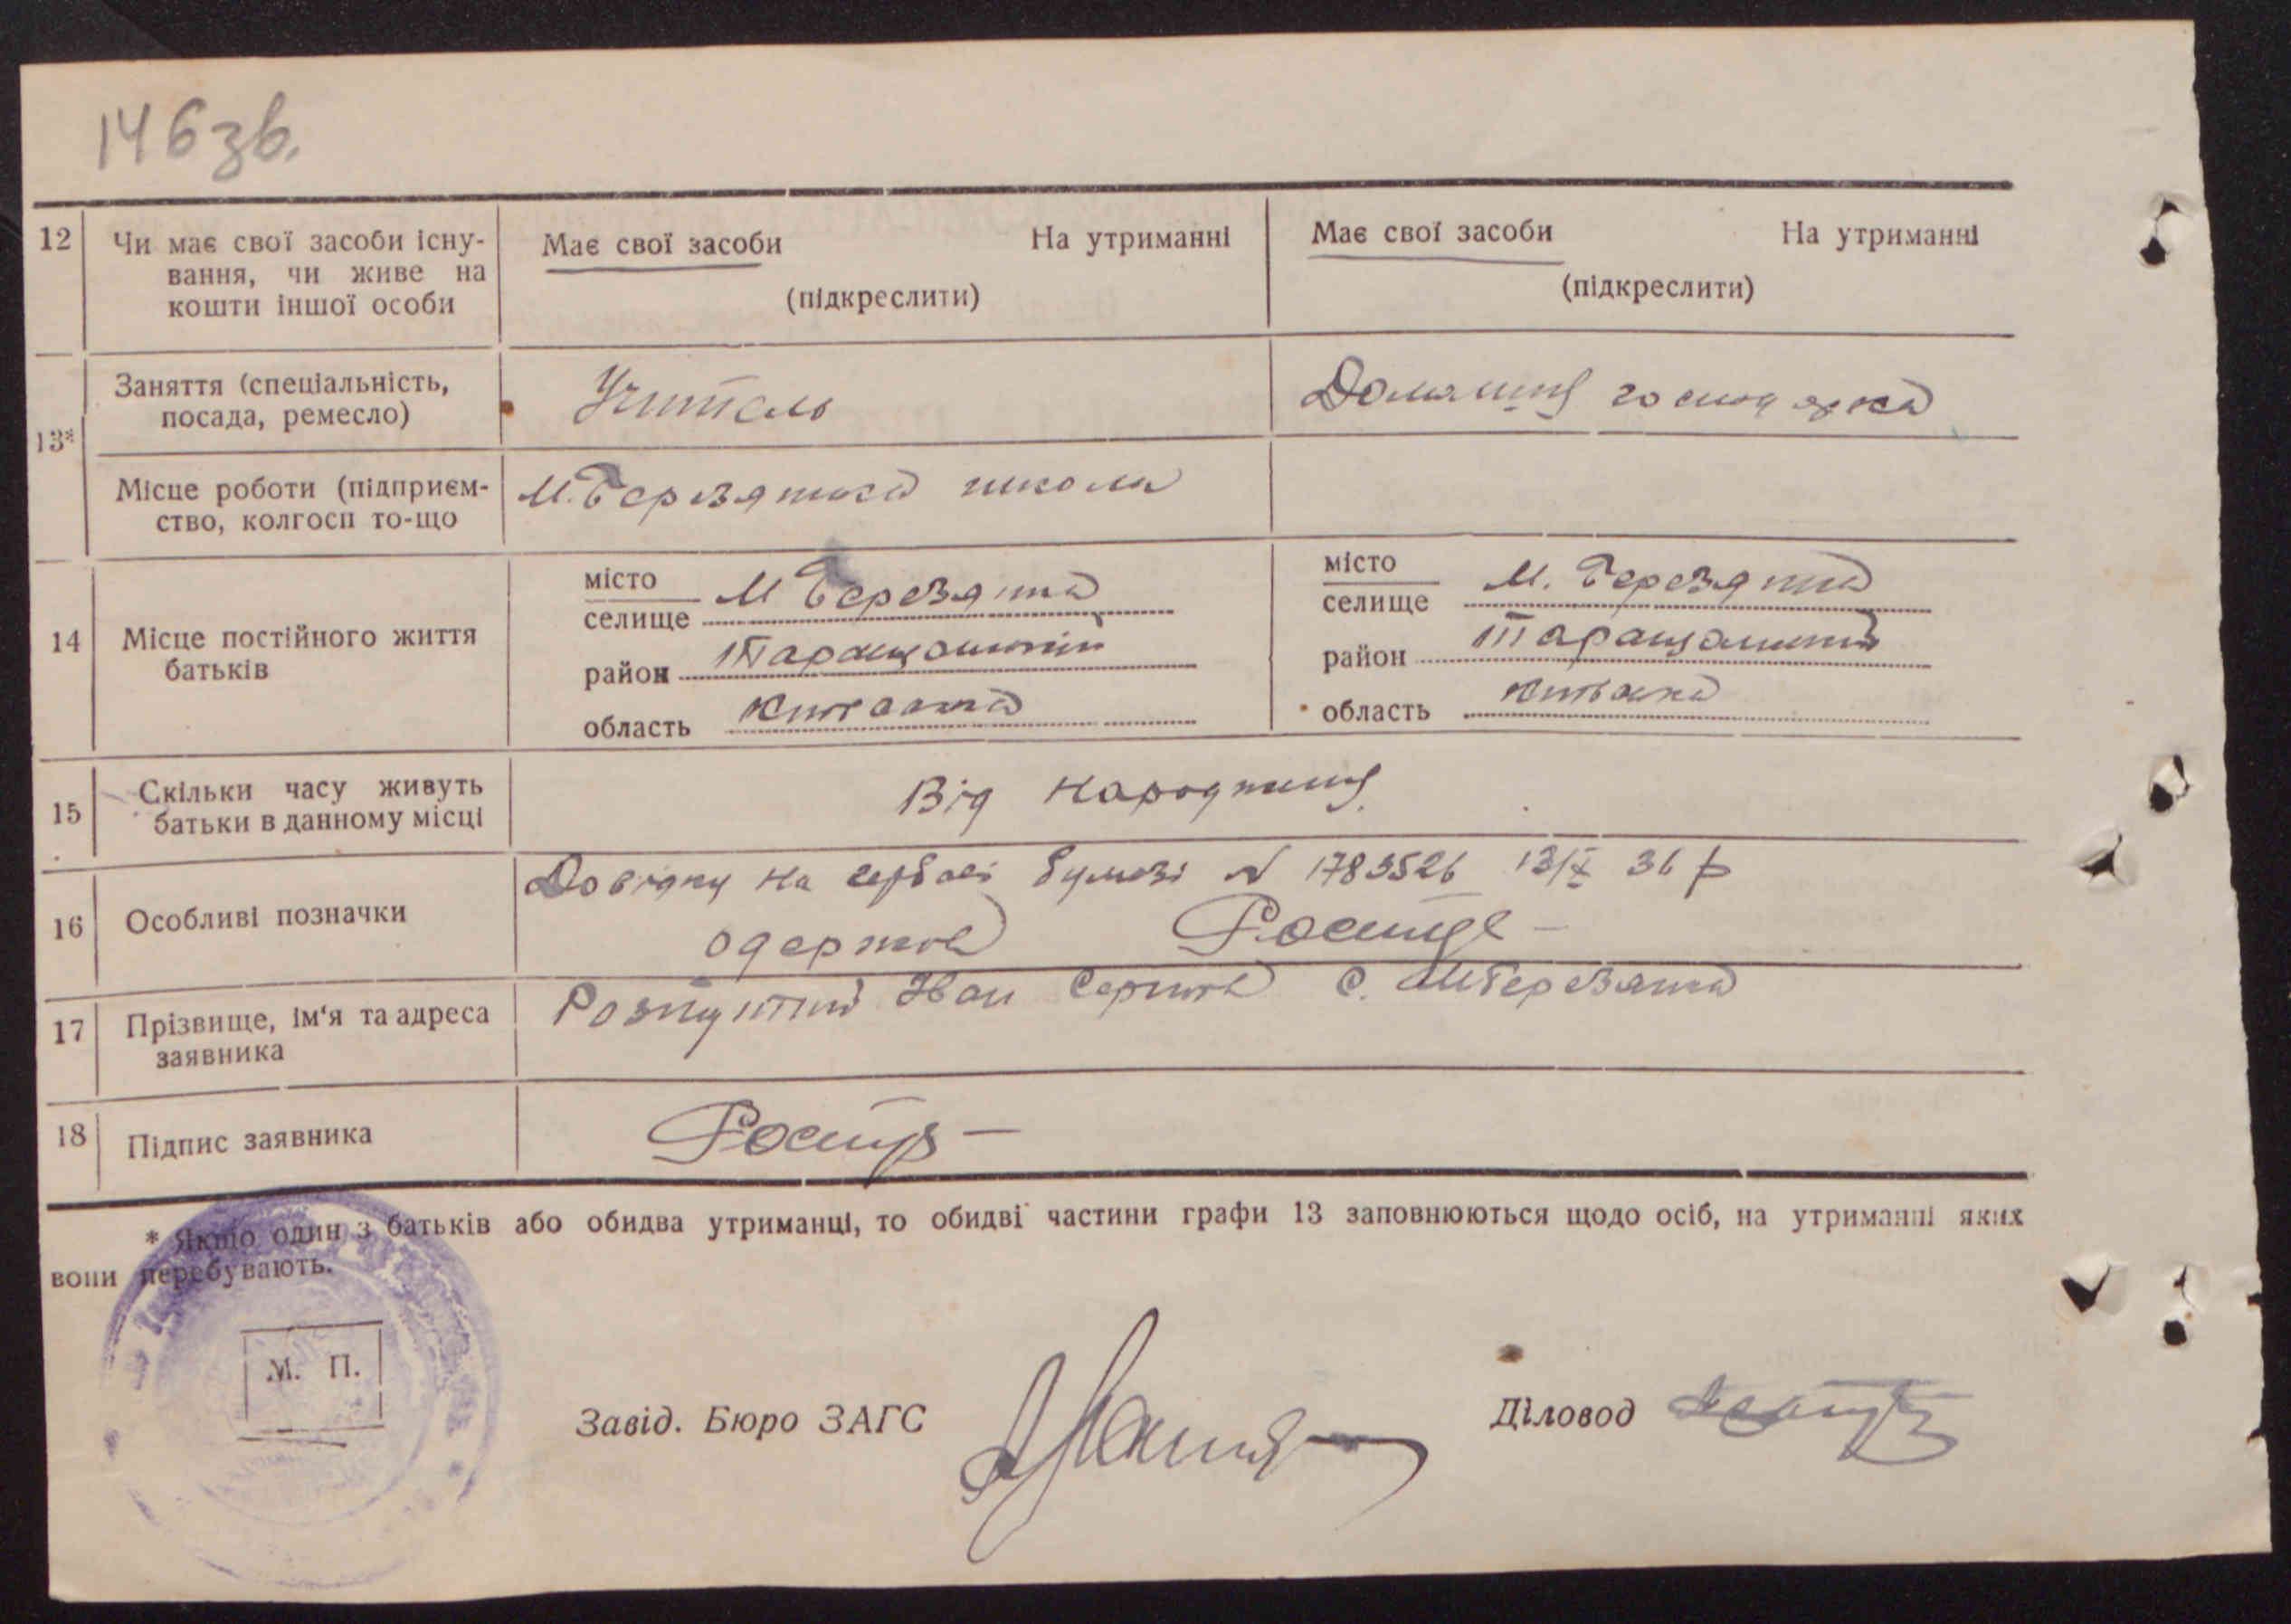 146 зв.
12 Чи має свої засоби існу- Має свої засоби На утриманні Має свої засоби На утриманні
вання, чи живе на (підкреслити) (підкреслити)
кошти іншої особи
13* Заняття (спеціальність, Учитель Домашня господарка
посада, ремесло)
Місце роботи (підприєм- М. Березянська школа
ство, колгосп то-що
14 Місце постійного життя
батьків
місто М Березянка місто М. Березянка
селище селище
район Таращанський район Таращанський
область Київська область Київська
15 Скільки часу живуть Від народження
батьки в данному місці
16 Особливі позначки Довідку на гербові бумазі № 1783526 13/X 36 р
одержав
17 Прізвище, ім'я та адреса Іван с. М Березянка
заявника
18 Підпис заявника
* Якщо один з батьків або обидва утриманці, то обидві частини графи 13 заповнюються щодо осіб, на утриманні яких
вони перебувають.
М. П.
Завід. Бюро ЗАГС Діловод